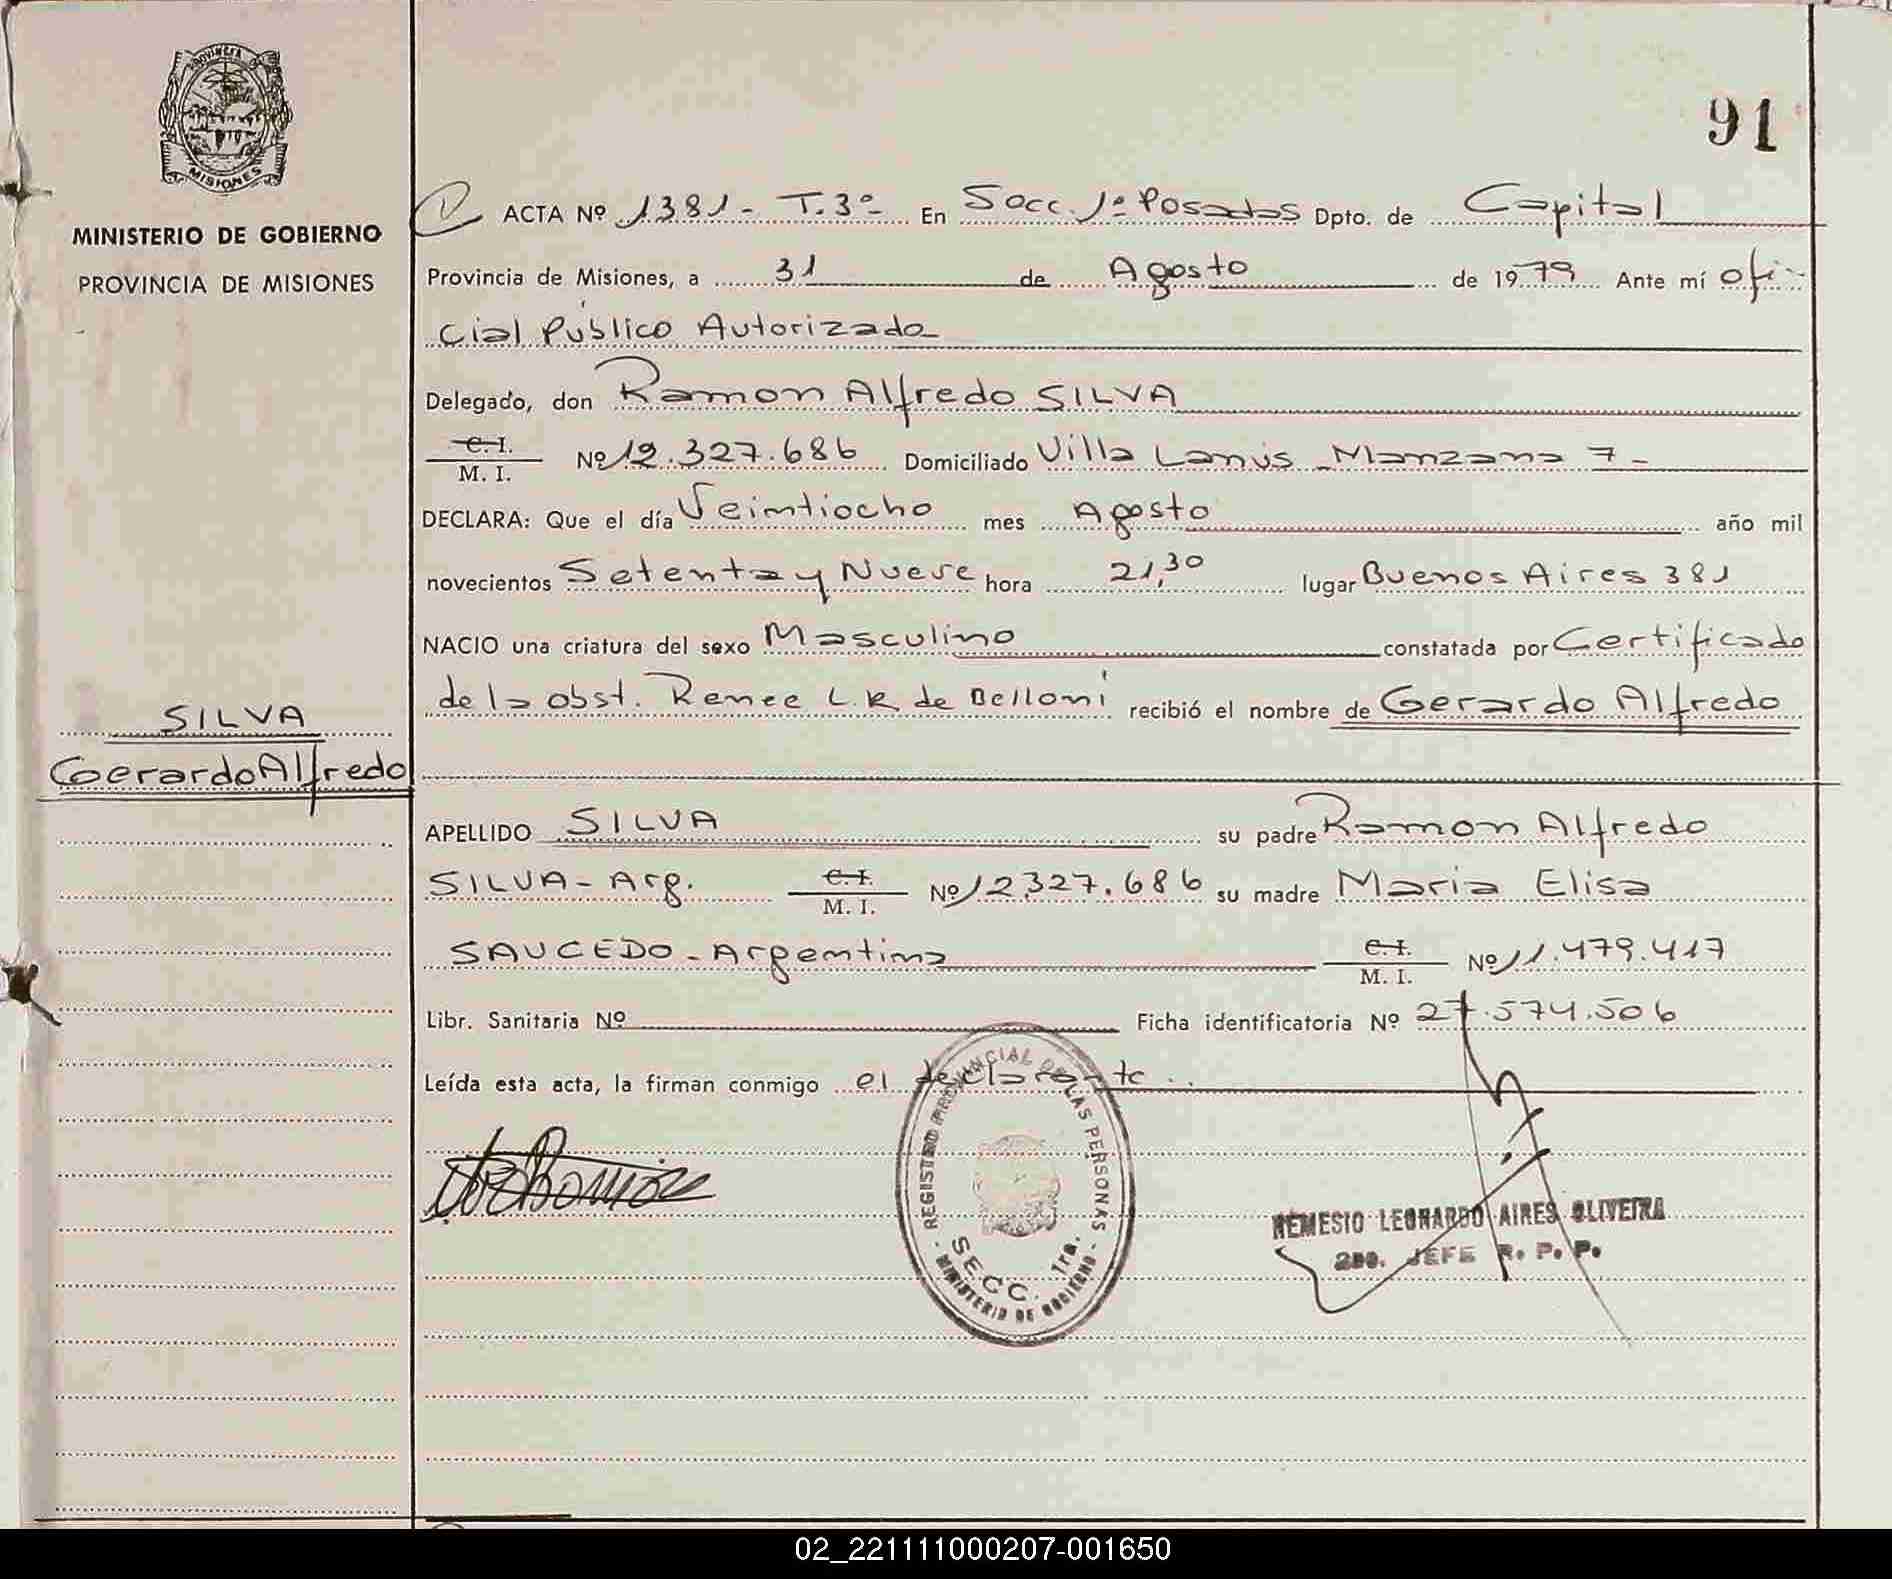 PROVINCIA DE
MISIONES
MINISTERIO DE GOBIERNO
PROVINCIA DE MISIONES
91
ACTA Nº 1381 - T.3º - En Secc. 1º Posadas Dpto. de Capital
Provincia de Misiones, a 31 de Agosto de 1979 Ante mí ofi-
cial Público Autorizado
Delegado, don Ramon Alfredo SILVA
C. I.
M. I. Nº 12.327.686 Domiciliado Villa Lanús Manzana 7 -
DECLARA: Que el día Veintiocho mes Agosto año mil
novecientos Setenta y Nueve hora 21,30 lugar Buenos Aires 381
NACIO una criatura del sexo Masculino constatada por Certificado
de la obst. Renee L. R. de Belloni recibió el nombre de Gerardo Alfredo
SILVA
Gerardo Alfredo
APELLIDO SILVA su padre Ramon Alfredo
SILVA - Arg. C. I.
M. I. Nº 12327.686 su madre Maria Elisa
SAUCEDO - Argentina C. I.
M. I. Nº 11.479.417
Libr. Sanitaria Nº Ficha identificatoria Nº 27.574.506
Leída esta acta, la firman conmigo el declarante.
REGISTRO PROVINCIAL DE LAS PERSONAS
SECC. 1ra.
- MINISTERIO DE GOBIERNO -
REMESIO LEONARDO AIRES OLIVEIRA
2DO. JEFE R. P. P.
02_221111000207-001650